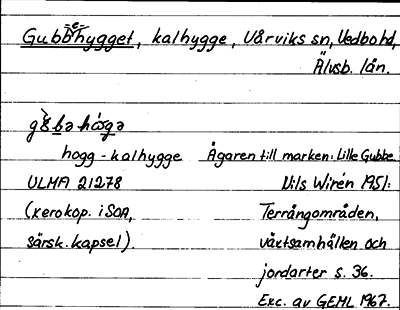 Gubbehygget, kalhygge, Vårviks sn, Vedbo hd,
Älvsb. län.
hogg-kalhygge Ägaren till marken: Lille Gubbe
ULMA 21278 Nils Wirén 1951:
(xerokop. i SOA, Terrängområden,
särsk. kapsel). växtsamhällen och
jordarter s. 36.
Exc. av GEHL 1967.